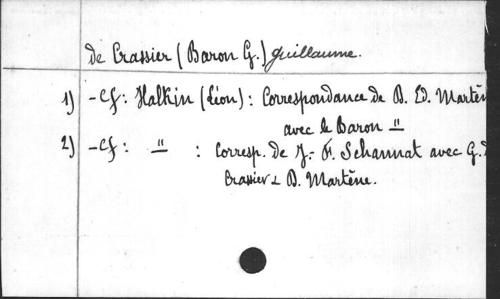 de Crassier (Baron G.) Guillaume.
1) - Cf: Halkin (Léon): Correspondance de D. Ed. Martèn
avec le Baron "
2) - Cf: " : Corresp. de J.-F. Schannat avec G. d
Crassier & D. Martène.